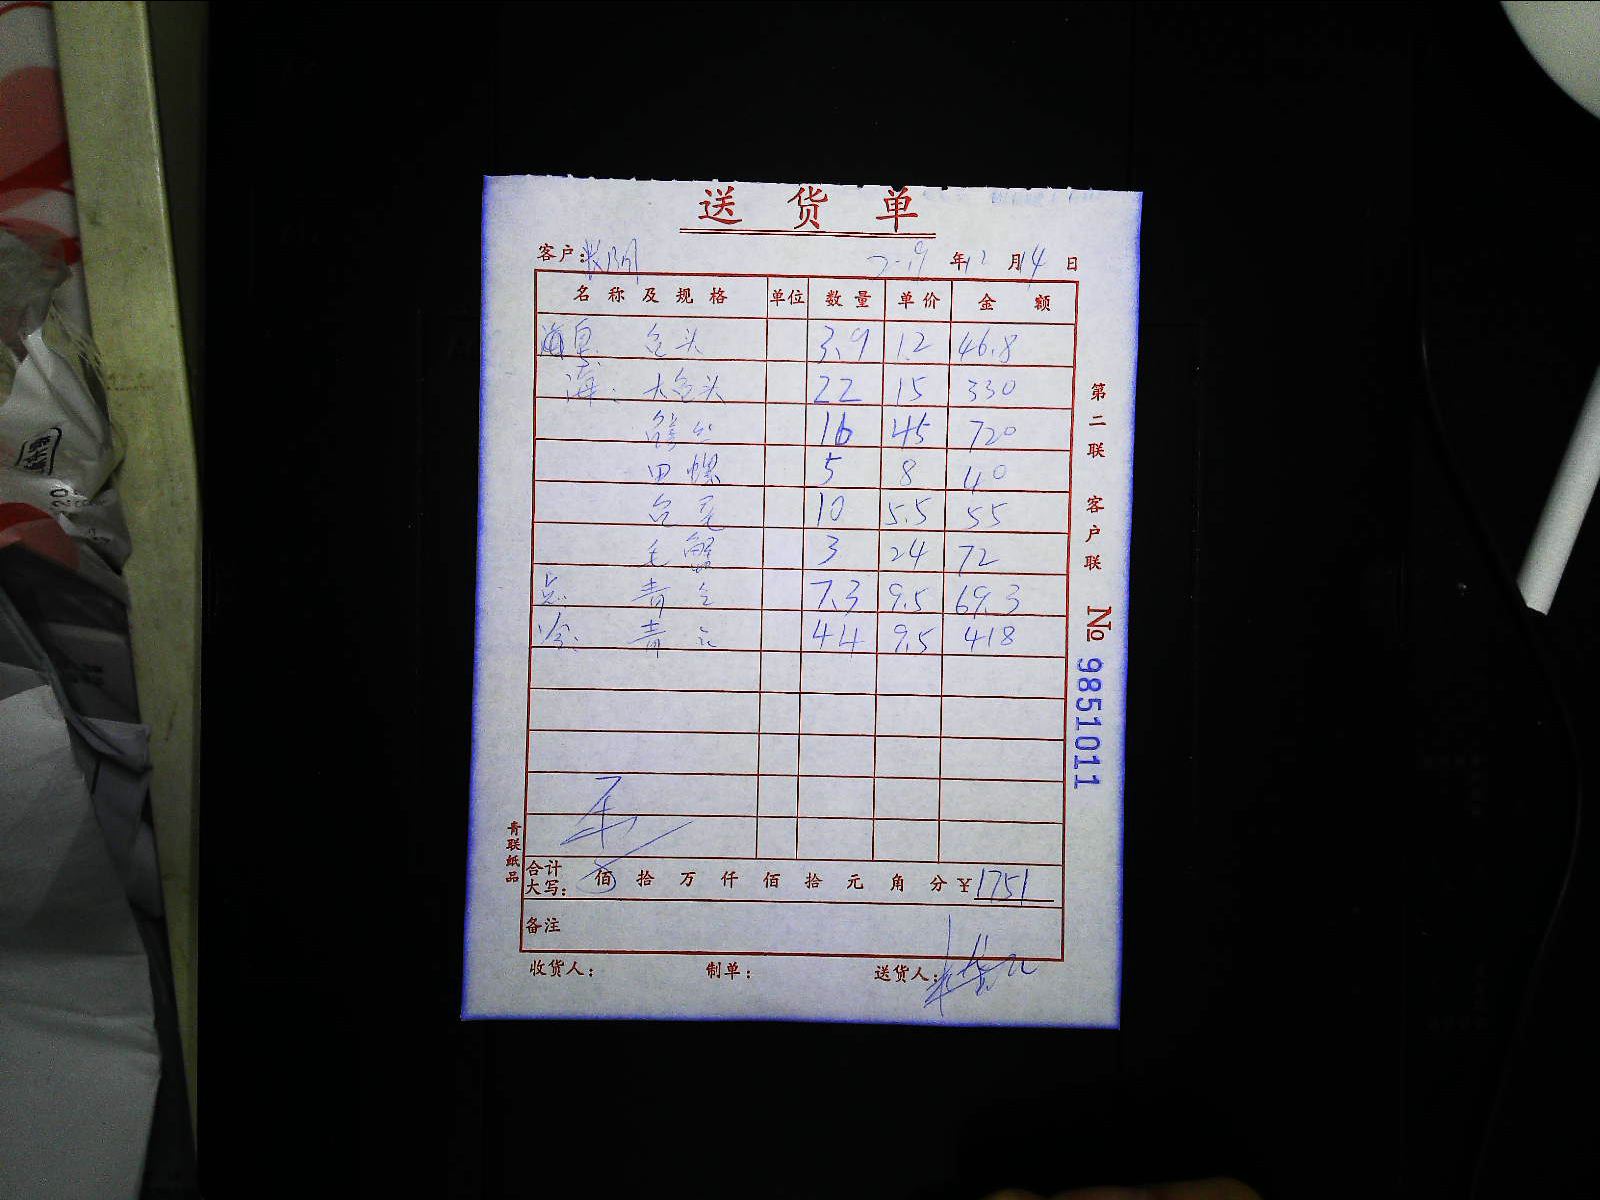 送货单
客户: 2019年12月14日
名称及规格 单位 数量 单价 金额
包头 3.9 12 46.8
海: 大包头 22 15 330
16 45 720
田螺 5 8 40
10 5.5 55
毛蟹 3 24 72
点: 青 7.3 9.5 69.3
冷: 青 44 9.5 418
合计大写: 佰拾万仟佰拾元角分¥1751
备注
收货人: 制单: 送货人:
第二联 客户联 No 9851011
青联纸品